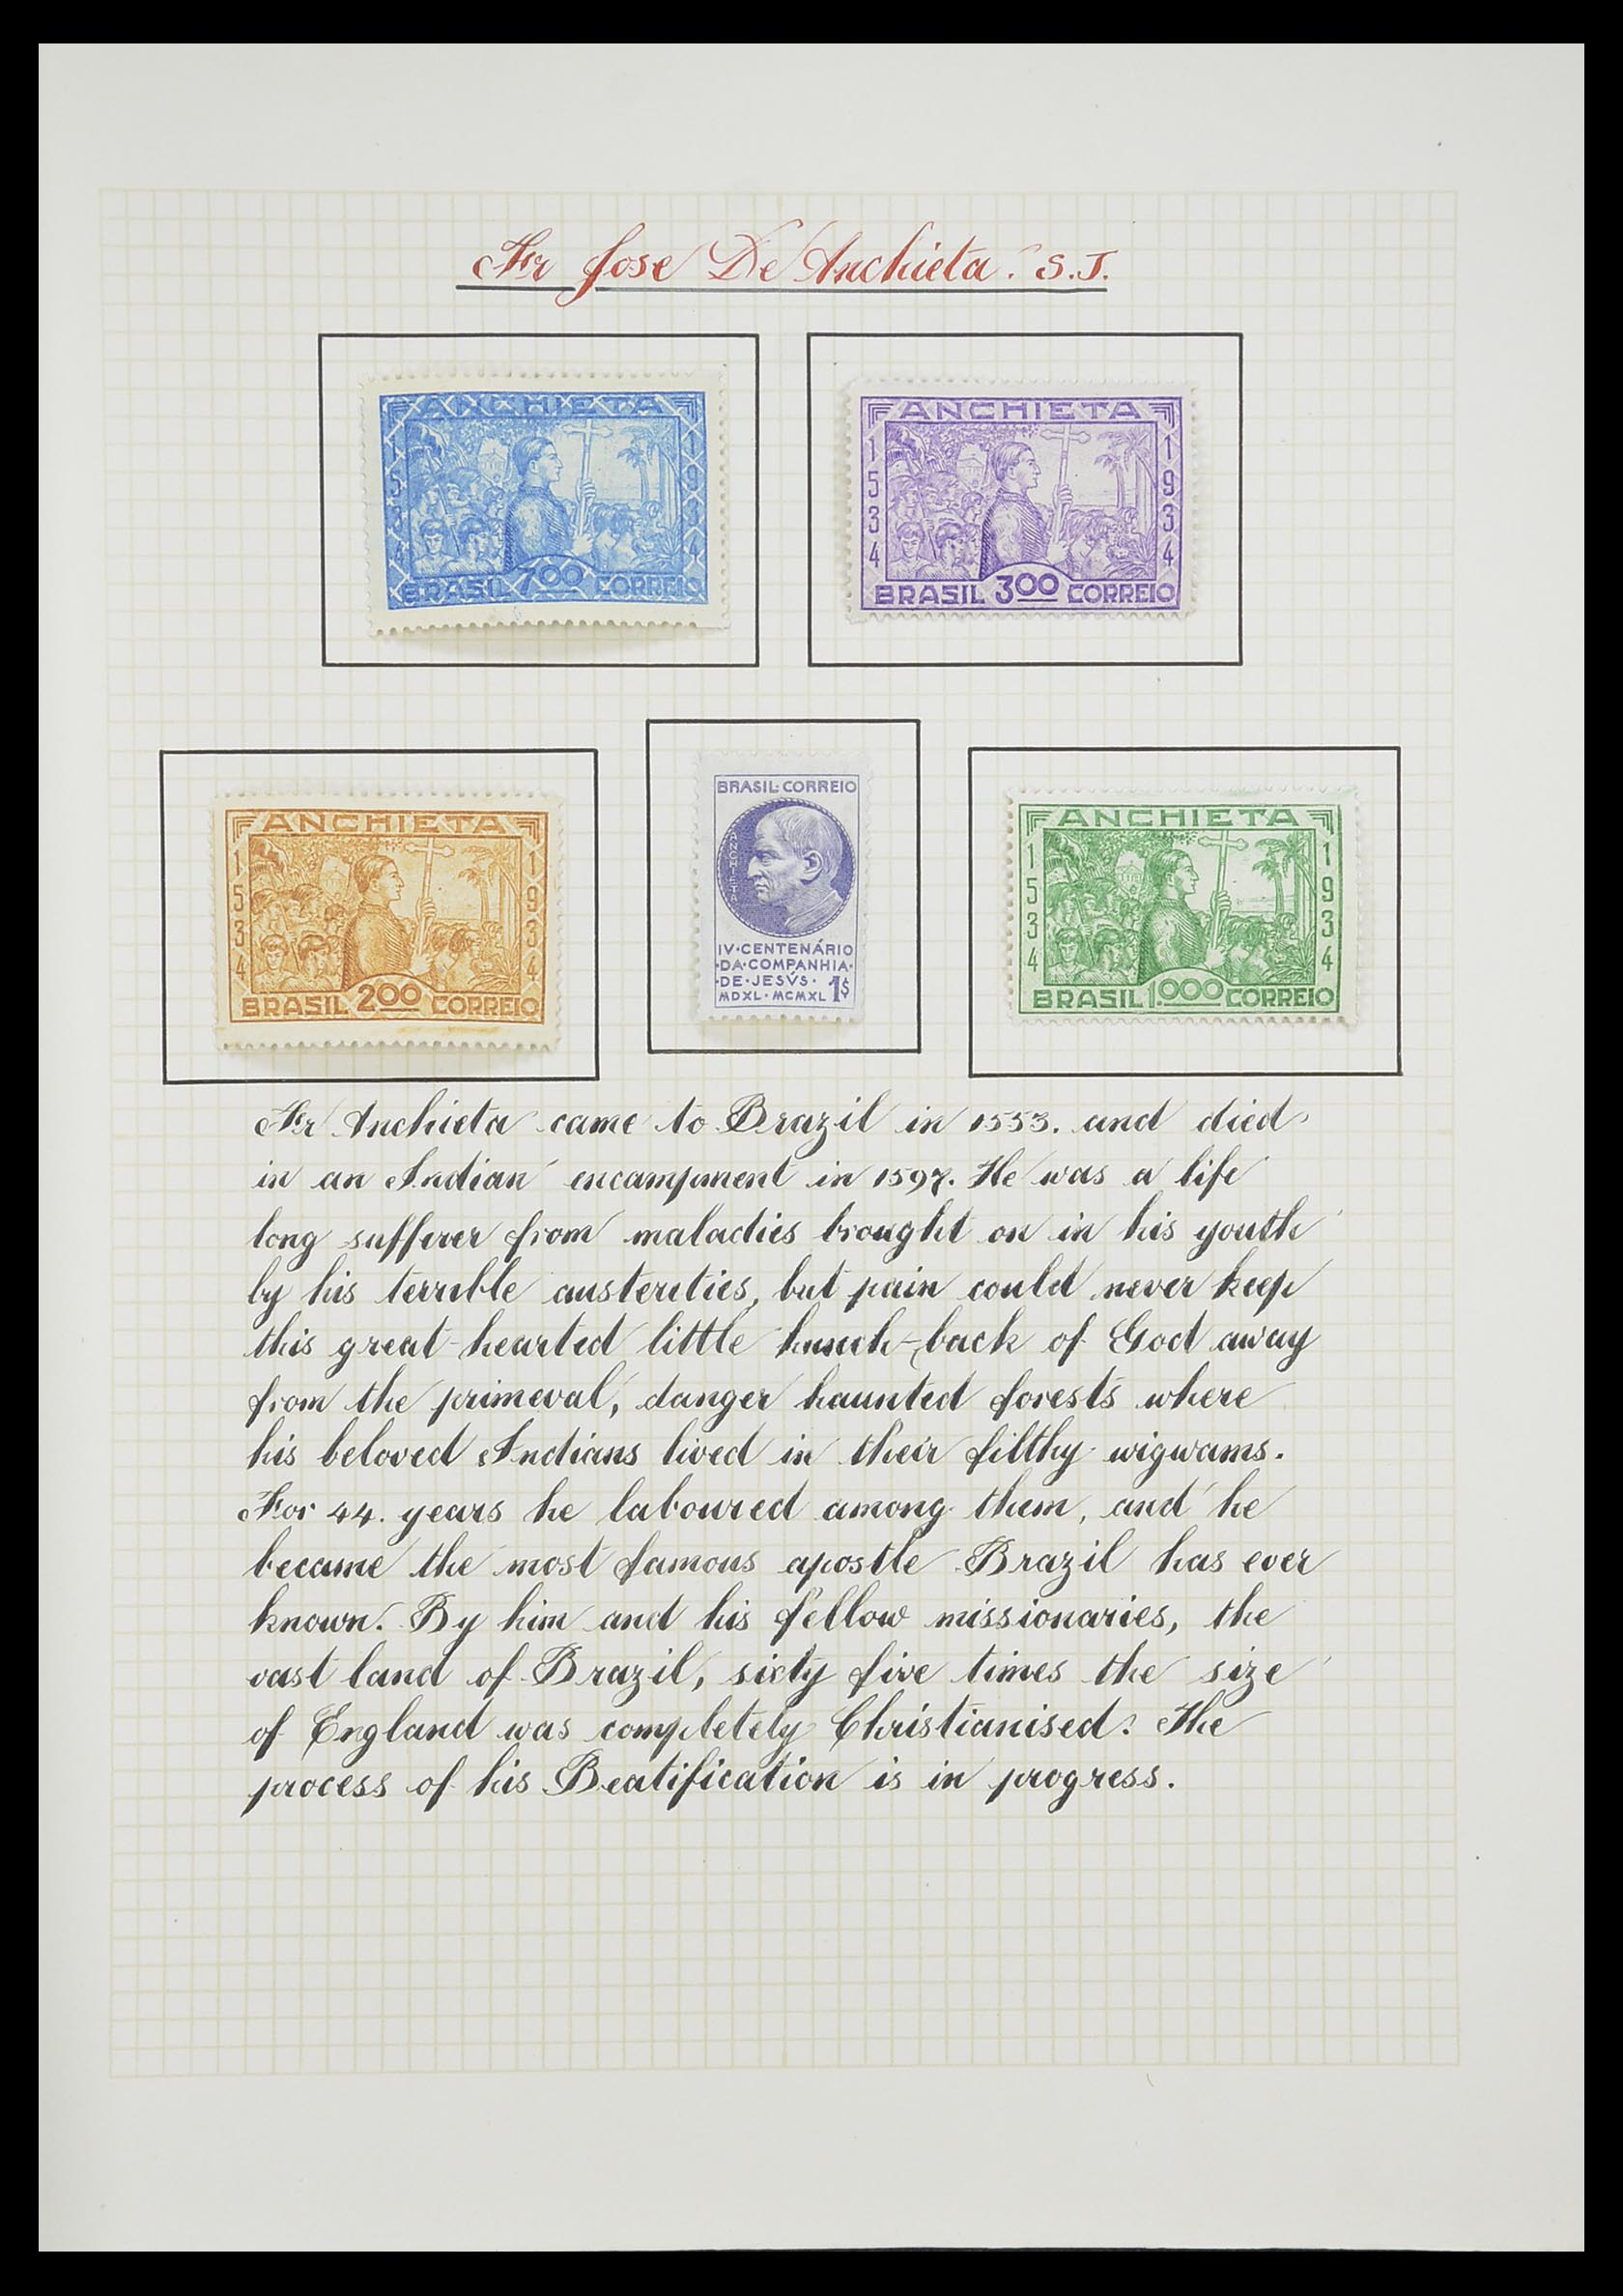 Fr Jose De Anchieta. S.J.
ANCHIETA
1534
1934
BRASIL 700 CORREIO
ANCHIETA
1534
1934
BRASIL 300 CORREIO
ANCHIETA
1534
1934
BRASIL 200 CORREIO
BRASIL·CORREIO
ANCHIETA
IV·CENTENÁRIO
·DA·COMPANHIA·
·DE·JESÚS·
MDXL·MCMXL 1$
ANCHIETA
1534
1934
BRASIL 1.000 CORREIO
Fr Anchieta came to Brazil in 1553. and died
in an Indian encampment in 1597. He was a life
long sufferer from maladies brought on in his youth
by his terrible austerities, but pain could never keep
this great-hearted little hunch-back of God away
from the primeval, danger haunted forests where
his beloved Indians lived in their filthy wigwams.
For 44. years he laboured among them, and he
became the most famous apostle Brazil has ever
known. By him and his fellow missionaries, the
vast land of Brazil, sixty five times the size
of England was completely Christianised. The
process of his Beatification is in progress.